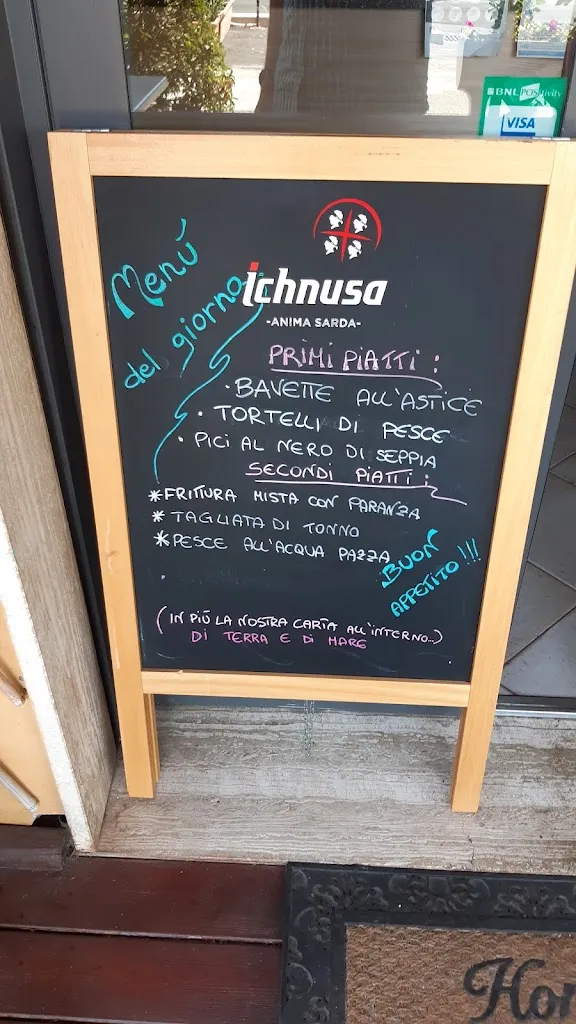 BNL POSitivity
VISA
ichnusa
-ANIMA SARDA-
Menú
del giorno
PRIMI PIATTI:
· BAVETTE ALL'ASTICE
· TORTELLI DI PESCE
· PICI AL NERO DI SEPPIA
SECONDI PIATTI:
* FRITTURA MISTA CON PARANZA
* TAGLIATA DI TONNO
* PESCE ALL'ACQUA PAZZA
BUON
APPETITO!!!
(IN PIÚ LA NOSTRA CARTA ALL'INTERNO...)
DI TERRA E DI MARE
Hom